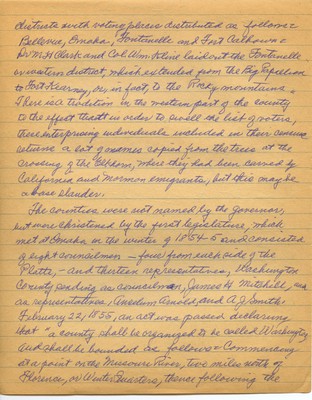 districts with voting places distributed as follows =
Bellevue, Omaha, Fontanelle and Fort Calhoun =
Dr M.H Clark and Col Wm. Kline laid out the Fontanelle
or western district, which extended from the Big Papillion
to Fort Kearney, or, in fact, to the Rocky mountains.
There is a tradition in the western part of the county
to the effect that in order to swell the list of voters,
these enterprising individuals included in their census
returns a lot of names copied from the trees at the
crossing of the Elkhorn, where they had been carved by
California and Mormon emigrants, but this may be
a base slander.
The counties were not named by the governor,
but were christened by the first legislature, which
met at Omaha in the winter of 1854-5 and consisted
of eight councilmen - four from each side of the
Platte, - and thirteen representatives, Washington
County sending as councilman, James H. Mitchell, and
as representatives, Anselum Arnold and A J Smith.
February 22, 1855, an act was passed declaring
that "a county shall be organized to be called Washington
and shall be bounded as follows = Commencing
at a point on the Missouri River, two miles north of
Florence, or Winter Quarters, thence following the